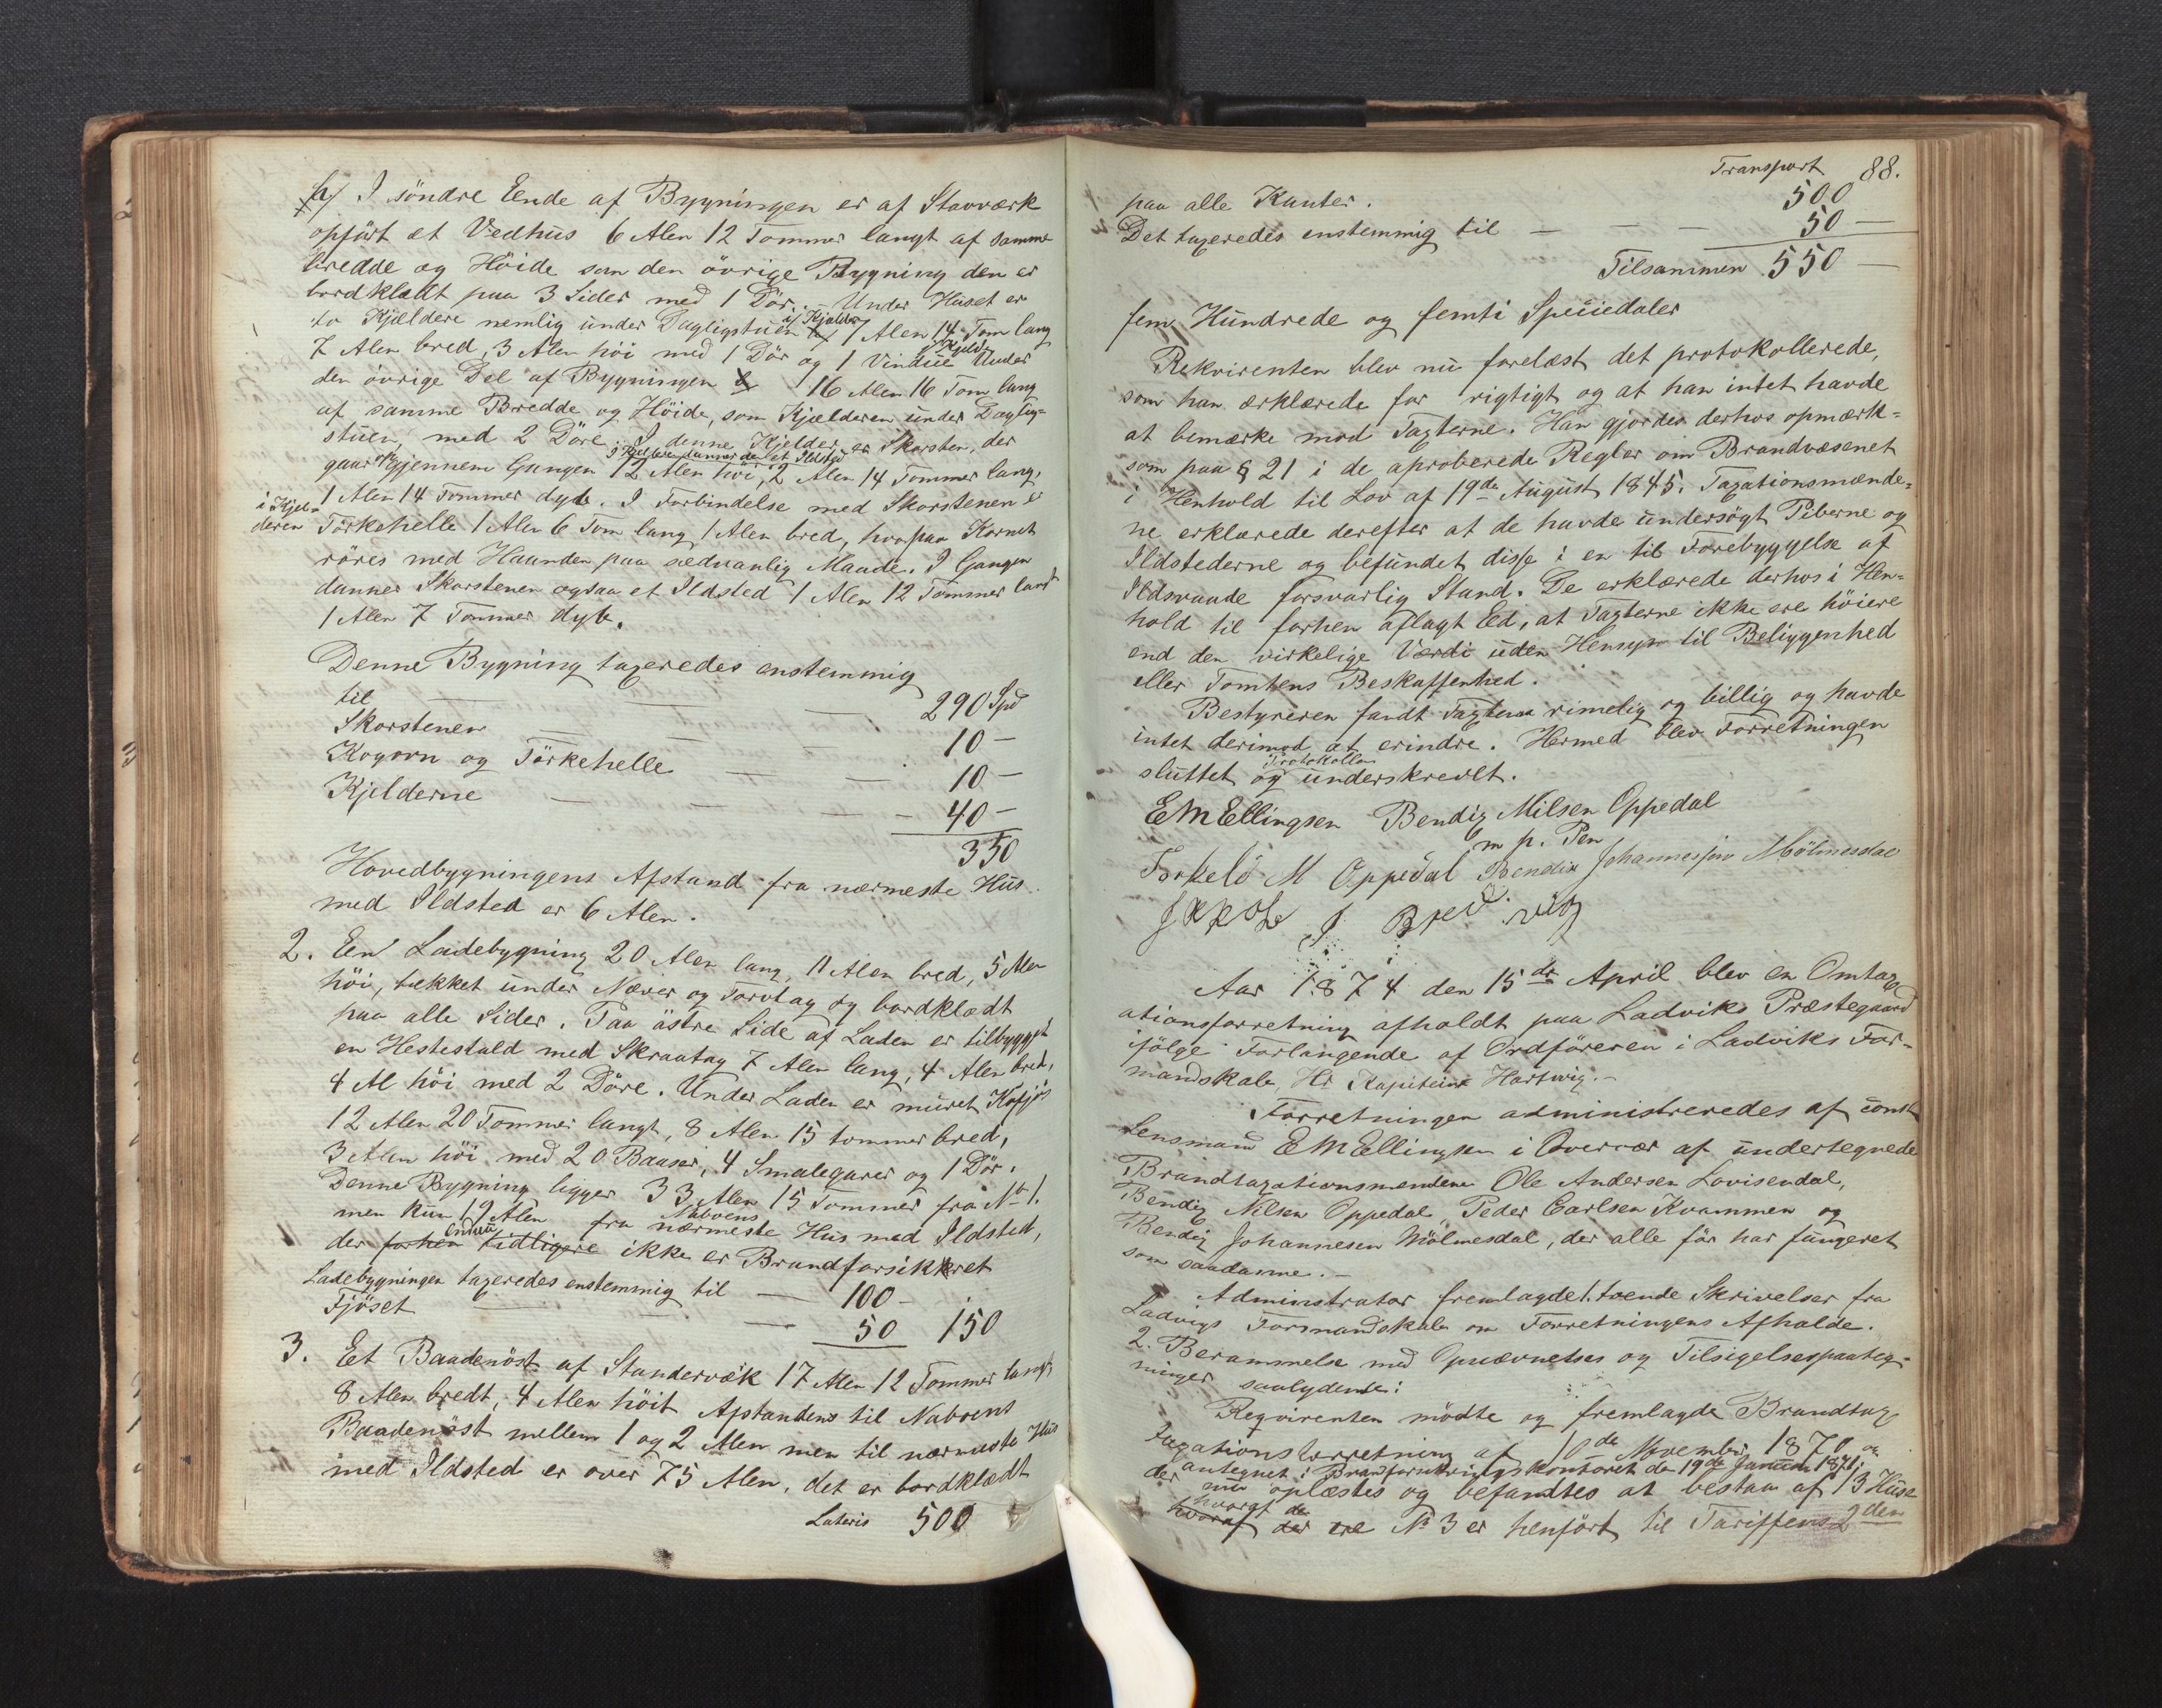 h/ I söndre Ende af Bygningen er af Stavværk
opfört et Vedhus 6 Alen 12 Tommer langt af samme
bredde og Höide som den övrige Bygning den er
bordklædt paa 3 Sider med 1 Dör. – Under Huset er
to Kjældere nemlig under Dagligstuen i/ Kjælder 7 Alen 14 Tom lang
7 Alen bred, 3 Alen höi med 1 Dör og 1 Vindue Under
den övrige Del af Bygningen Kjelder 16 Alen 16 Tom lang
af samme Bredde og Höide, som Kjælderen under Daglig-
stuen, med 2 Döre. I denne Kjelder er Skorsten, der
gaar op gjennem Gangen 12 Alen höi, 2 Alen 14 Tommer lang,
I Kjelderen danner den et Ildsted
1 Alen 14 Tommer dyb. I Forbindelse med Skorstenen er
i Kjel-
deren Törkehelle 1 Alen 6 Tom lang 1 Alen bred, hvorpaa Kornet
röres med Haanden paa sædvanlig Maade. I Gangen
danner Skorstenen ogsaa et Ildsted 1 Alen 12 Tommer langt
1 Alen 7 Tommer dyb.
Denne Bygning taxeredes enstemmig
til — — — 290 Spd
Skorstenen — — — 10 –
Kogovn og Törkehelle — — 10 –
Kjelderne — — — 40 –
350
Hovedbygningens Afstand fra nærmeste Hus
med Ildsted er 6 Alen.
2. En Ladebygning 20 Alen lang, 11 Alen bred, 5 Alen
höi, tækket under Næver og Torvtag og bordklædt
paa alle Sider. Paa östre Side af Laden er tilbygget
en Hestestald med Skraatag 7 Alen lang, 4 Alen bred,
4 Al höi med 2 Döre. Under Laden er muret Kofjös
12 Alen 20 Tommer langt, 8 Alen 15 tommer bred,
3 Alen höi med 20 Baaser, 4 Smalegarer og 1 Dör.
Denne Bygning ligger 33 Alen 15 Tommer fra No 1.
men kun 19 Alen fra Naboens nærmeste Hus med Ildsted,
der forhen tidligere endnu ikke er Brandforsikkret
Ladebygningen taxeredes enstemmig til — 100 –
Fjöset — — 50 150
3. Et Baadenöst af Standervæk 17 Alen 12 Tommer langt,
8 Alen bredt, 4 Alen höit Afstanden til Naboens
Baadenöst mellem 1 og 2 Alen men til nærmeste Hus
med Ildsted er over 75 Alen, det er bordklædt
Lateris 500
Transport 88.
500
paa alle Kanter.
Det taxeredes enstemmig til — — — 50 —
Tilsammen 550 —
fem Hundrede og femti Speciedaler
Rekvirenten blev nu forelæst det protokollerede,
som han erklærede for rigtigt og at han intet havde
at bemærke mod Taxterne. Han gjordes derhos opmærk-
som paa § 21 i de aproberede Regler om Brandvæsenet
i Henhold til Lov af 19de August 1845. Taxationsmænde-
ne erklærede derefter at de havde undersögt Piberne og
Ildstederne og befundet disse i en til Forebyggelse af
Ildsvaade forsvarlig Stand. De erklærede derhos i Hen-
hold til forhen aflagt Ed, at Taxterne ikke ere höiere
end den virkelige Værdi uden Hensyn til Beliggenhed
eller Tomtens Beskaffenhed.
Bestyreren fandt Taxterne rimelig og billig og havde
intet derimod at erindre. Hermed blev Forretningen
sluttet og Protokollen underskrevet.
EMEllingsen Bendix Nilsen Oppedal
m p. Pen
Torkeld M Oppedal Bendix Johannessen Mölmesdal
Jakob J Bredvig
Aar 1874 den 15de April blev en Omtax
ationsforretning afholdt paa Ladviks Præstegaard
ifölge Forlangende af Ordföreren i Ladviks For-
mandskab, Hr Kapitein Hartwig. –
Forretningen administreredes af const
Lensmand EMEllingsen i Overvær af undertegnede
Brandtaxationsmændene Ole Andersen Lovisendal,
Bendix Nilsen Oppedal Peder Carlsen Kvammen og
Bendix Johannesen Mölmesdal, der alle för har fungeret
som saadanne. –
Administrator fremlagde 1. toende Skrivelser fra
Ladvigs Formandskab om Forretningens Afholde.
2. Berammelse med Opnævnelses og Tilsigelsespaateg-
ninger saalydende:
Reqvirenten mödte og fremlagde Brandtax
taxationsforretning af 10de November 1870 og
antegnet i Brandforsikringskontoret de 19de Januar 1871,
der nu oplæstes og befandtes at bestaa af 13 Huse
hvoraf der hvoraf de ere No 3 er henfört til Tariffens 2den